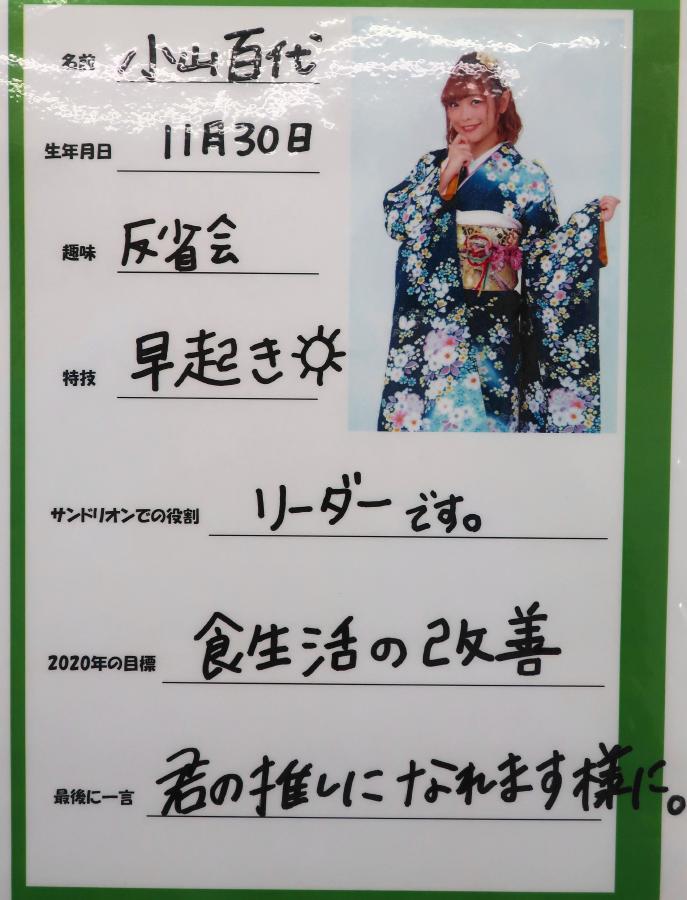 名前 小山百代
生年月日 11月30日
趣味 反省会
特技 早起き☼
サンドリオンでの役割 リーダーです。
2020年の目標 食生活の改善
最後に一言 君の推しになれます様に。